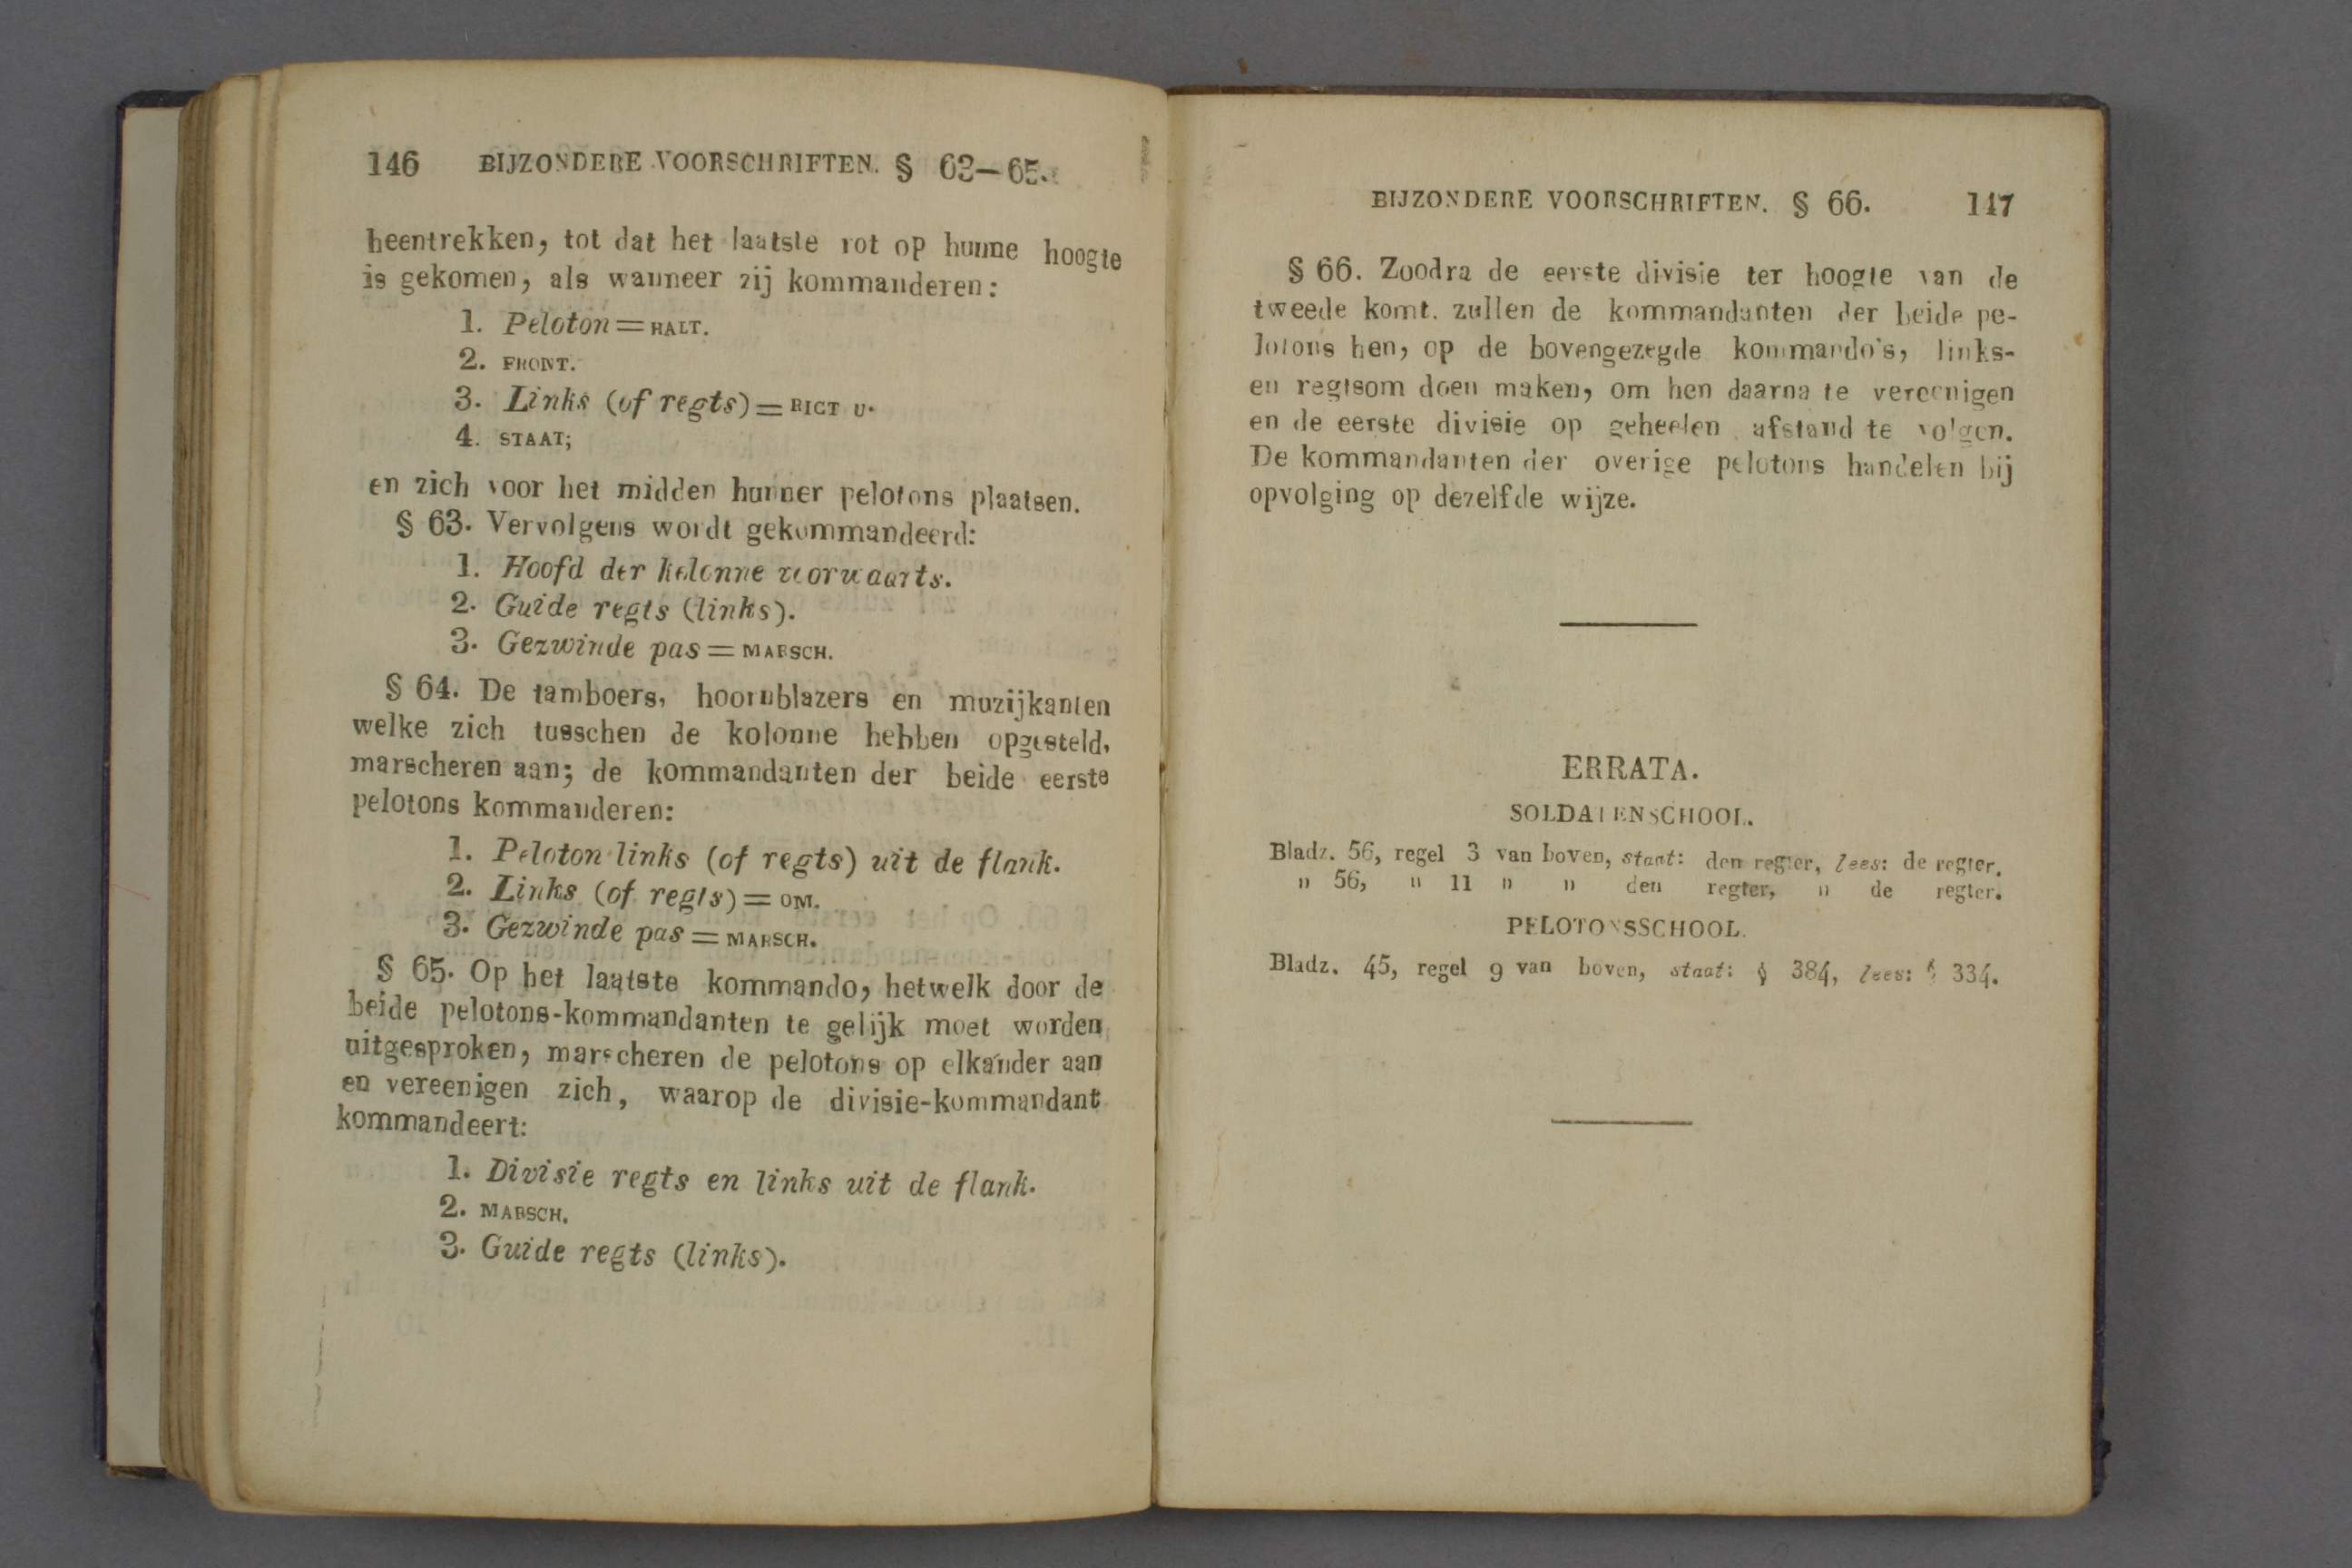 146 BIJZONDERE VOORSCHRIFTEN. § 63—65.
heentrekken, tot dat het laatste rot op hunne hoogte
is gekomen, als wanneer zij kommanderen:
1. Peloton = HALT.
2. FRONT.
3. Links (of regts) = RIGT U.
4. STAAT;
en zich voor het midden hunner pelotons plaatsen.
§ 63. Vervolgens wordt gekommandeerd:
1. Hoofd der kolonne voorwaarts.
2. Guide regts (links).
3. Gezwinde pas = MARSCH.
§ 64. De tamboers, hoornblazers en muzijkanten
welke zich tusschen de kolonne hebben opgesteld,
marscheren aan; de kommandanten der beide eerste
pelotons kommanderen:
1. Peloton links (of regts) uit de flank.
2. Links (of regts) = OM.
3. Gezwinde pas = MARSCH.
§ 65. Op het laatste kommando, hetwelk door de
beide pelotons-kommandanten te gelijk moet worden
uitgesproken, marscheren de pelotons op elkander aan
en vereenigen zich, waarop de divisie-kommandant
kommandeert:
1. Divisie regts en links uit de flank.
2. MARSCH.
3. Guide regts (links).
BIJZONDERE VOORSCHRIFTEN. § 66. 147
§ 66. Zoodra de eerste divisie ter hoogte van de
tweede komt. zullen de kommandanten der beide pe-
lotons hen, op de bovengezegde kommando's, links-
en regtsom doen maken, om hen daarna te vereenigen
en de eerste divisie op geheelen afstand te volgen.
De kommandanten der overige pelotons handelen bij
opvolging op dezelfde wijze.
ERRATA.
SOLDATENSCHOOL.
Bladz. 56, regel 3 van boven, staat: den regter, lees: de regter.
" 56, " 11 " " den regter, " de regter.
PELOTONSSCHOOL.
Bladz. 45, regel 9 van boven, staat: § 384, lees: § 334.